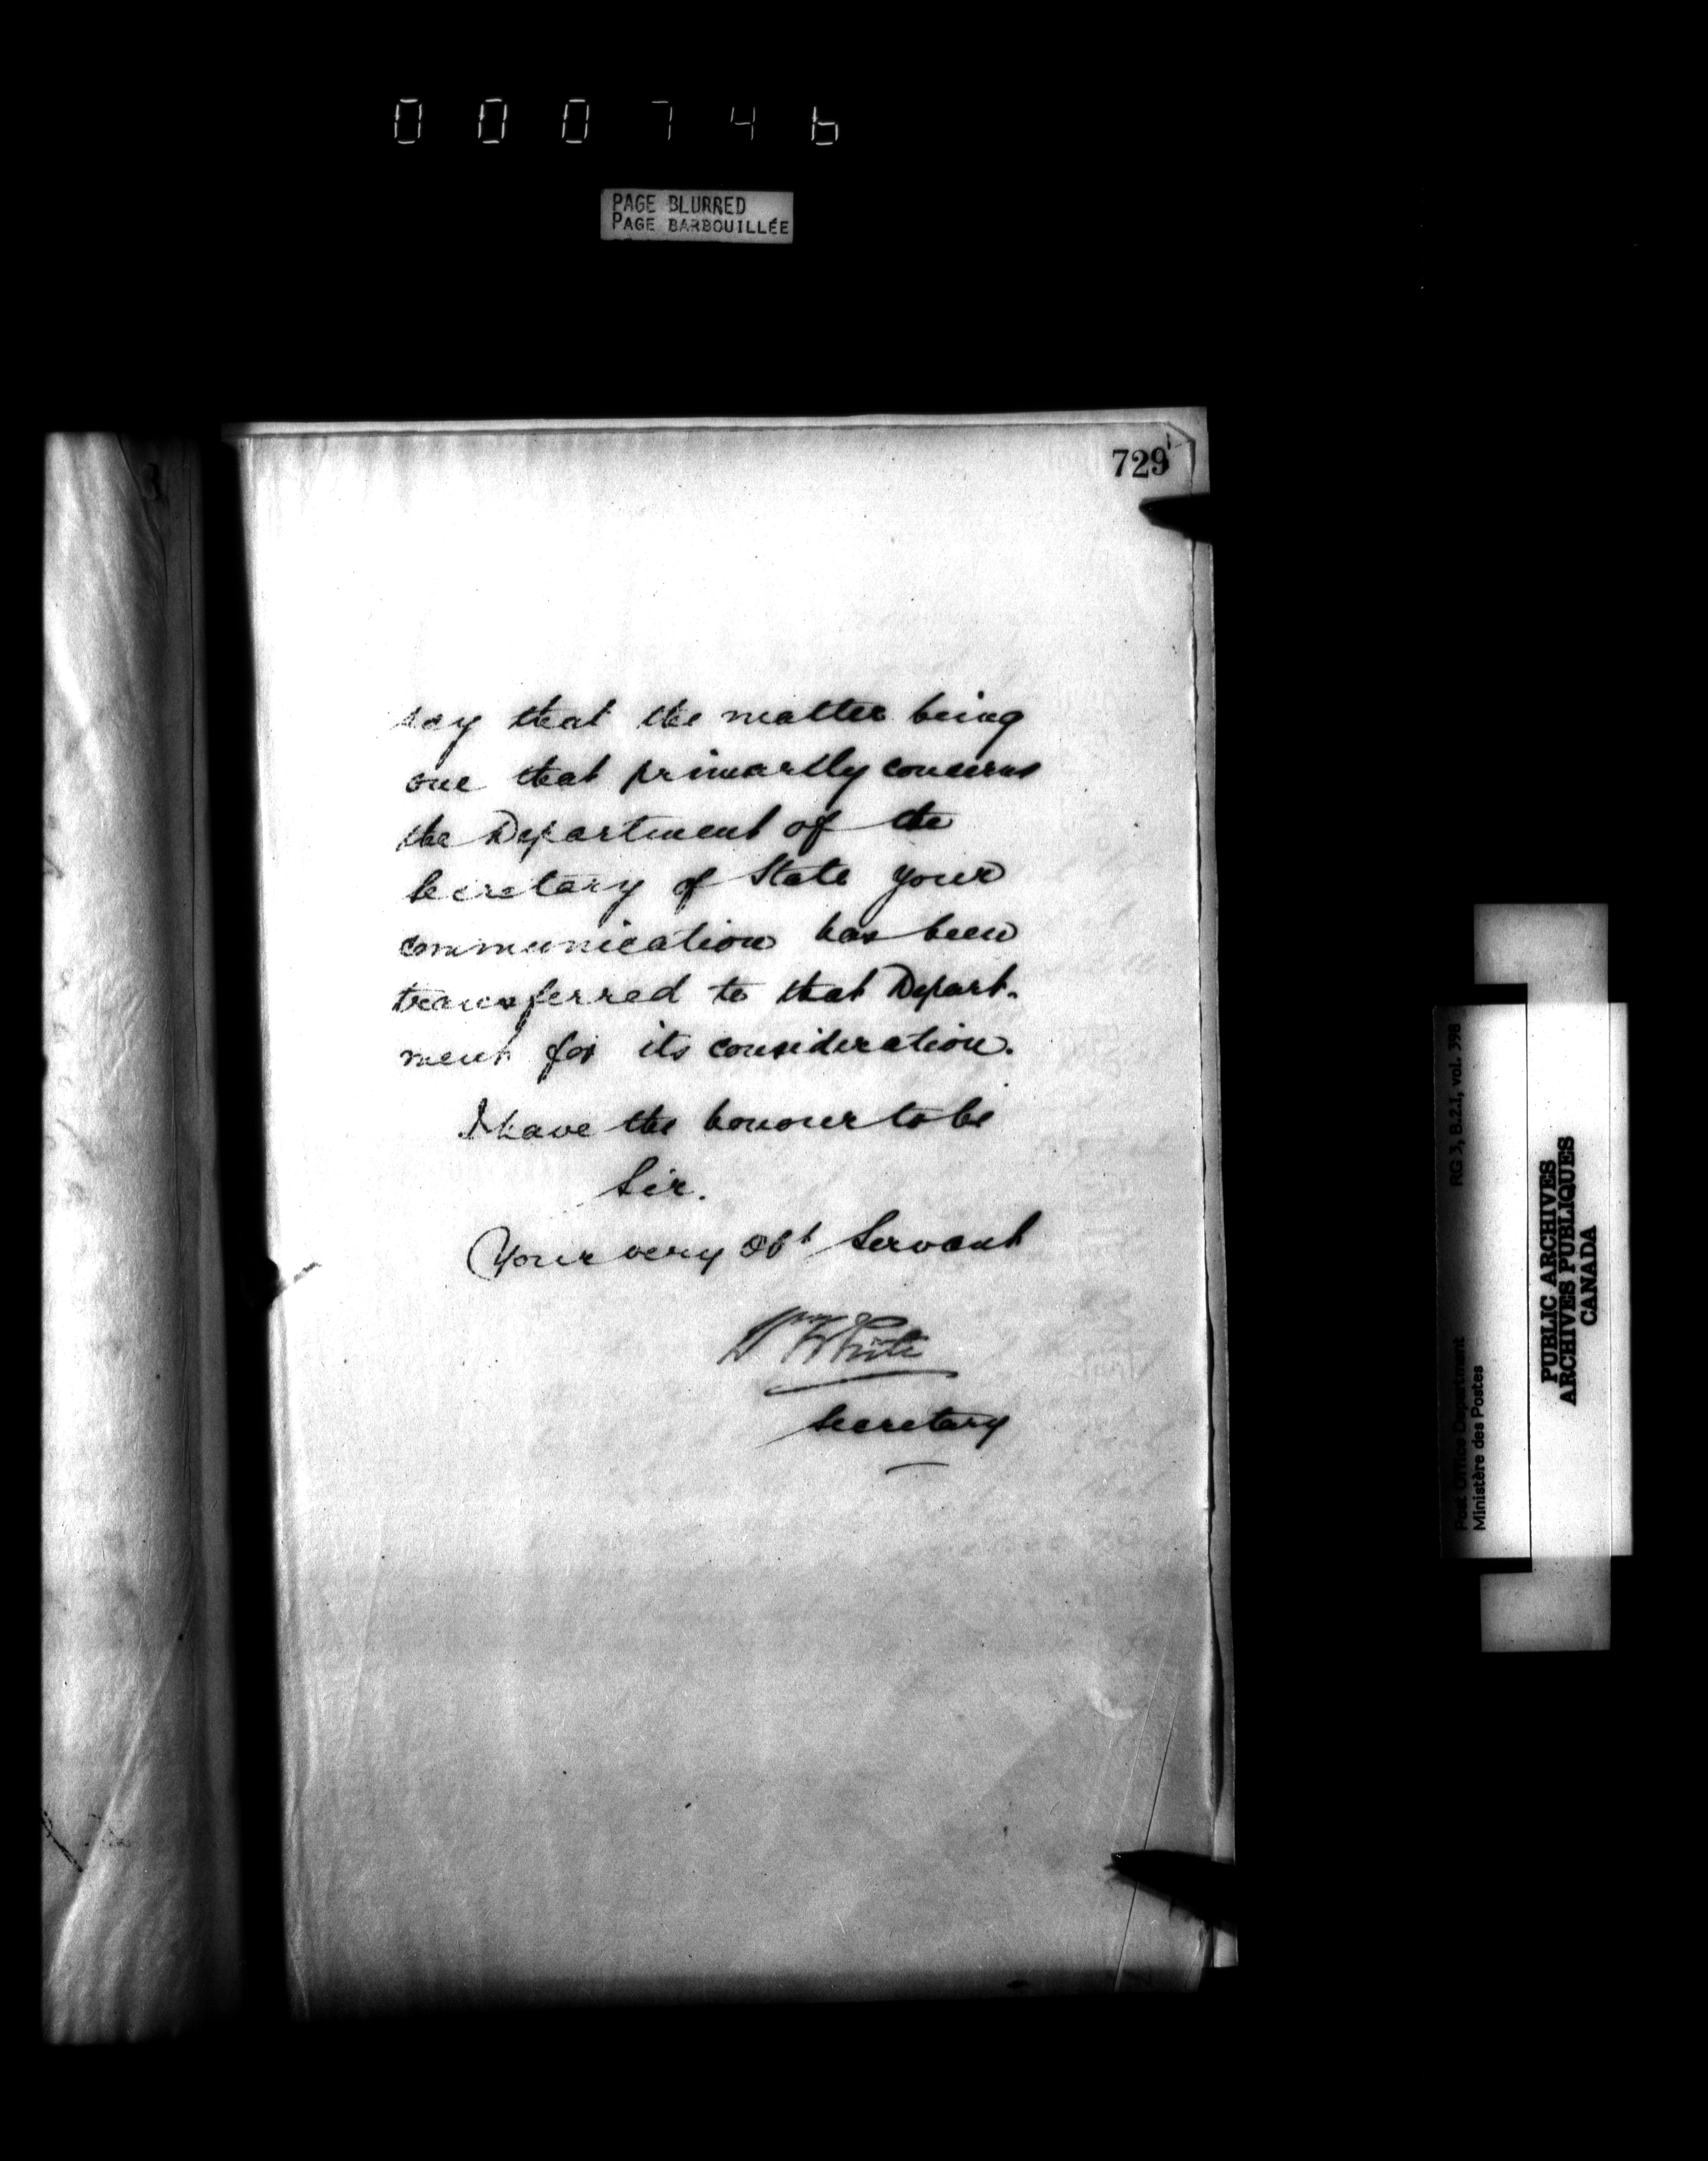 000746
PAGE BLURRED
PAGE BARBOUILLÉE
729
say that the matter being
one that primarily concerns
the Department of the
Secretary of State your
communication has been
transferred to that Depart-
ment for its consideration.
I have the honour to be
Sir.
Your very Obt Servant
Wm White
Secretary
RG 3, B.2.1, vol. 598
Post Office Department
Ministère des Postes
PUBLIC ARCHIVES
ARCHIVES PUBLIQUES
CANADA